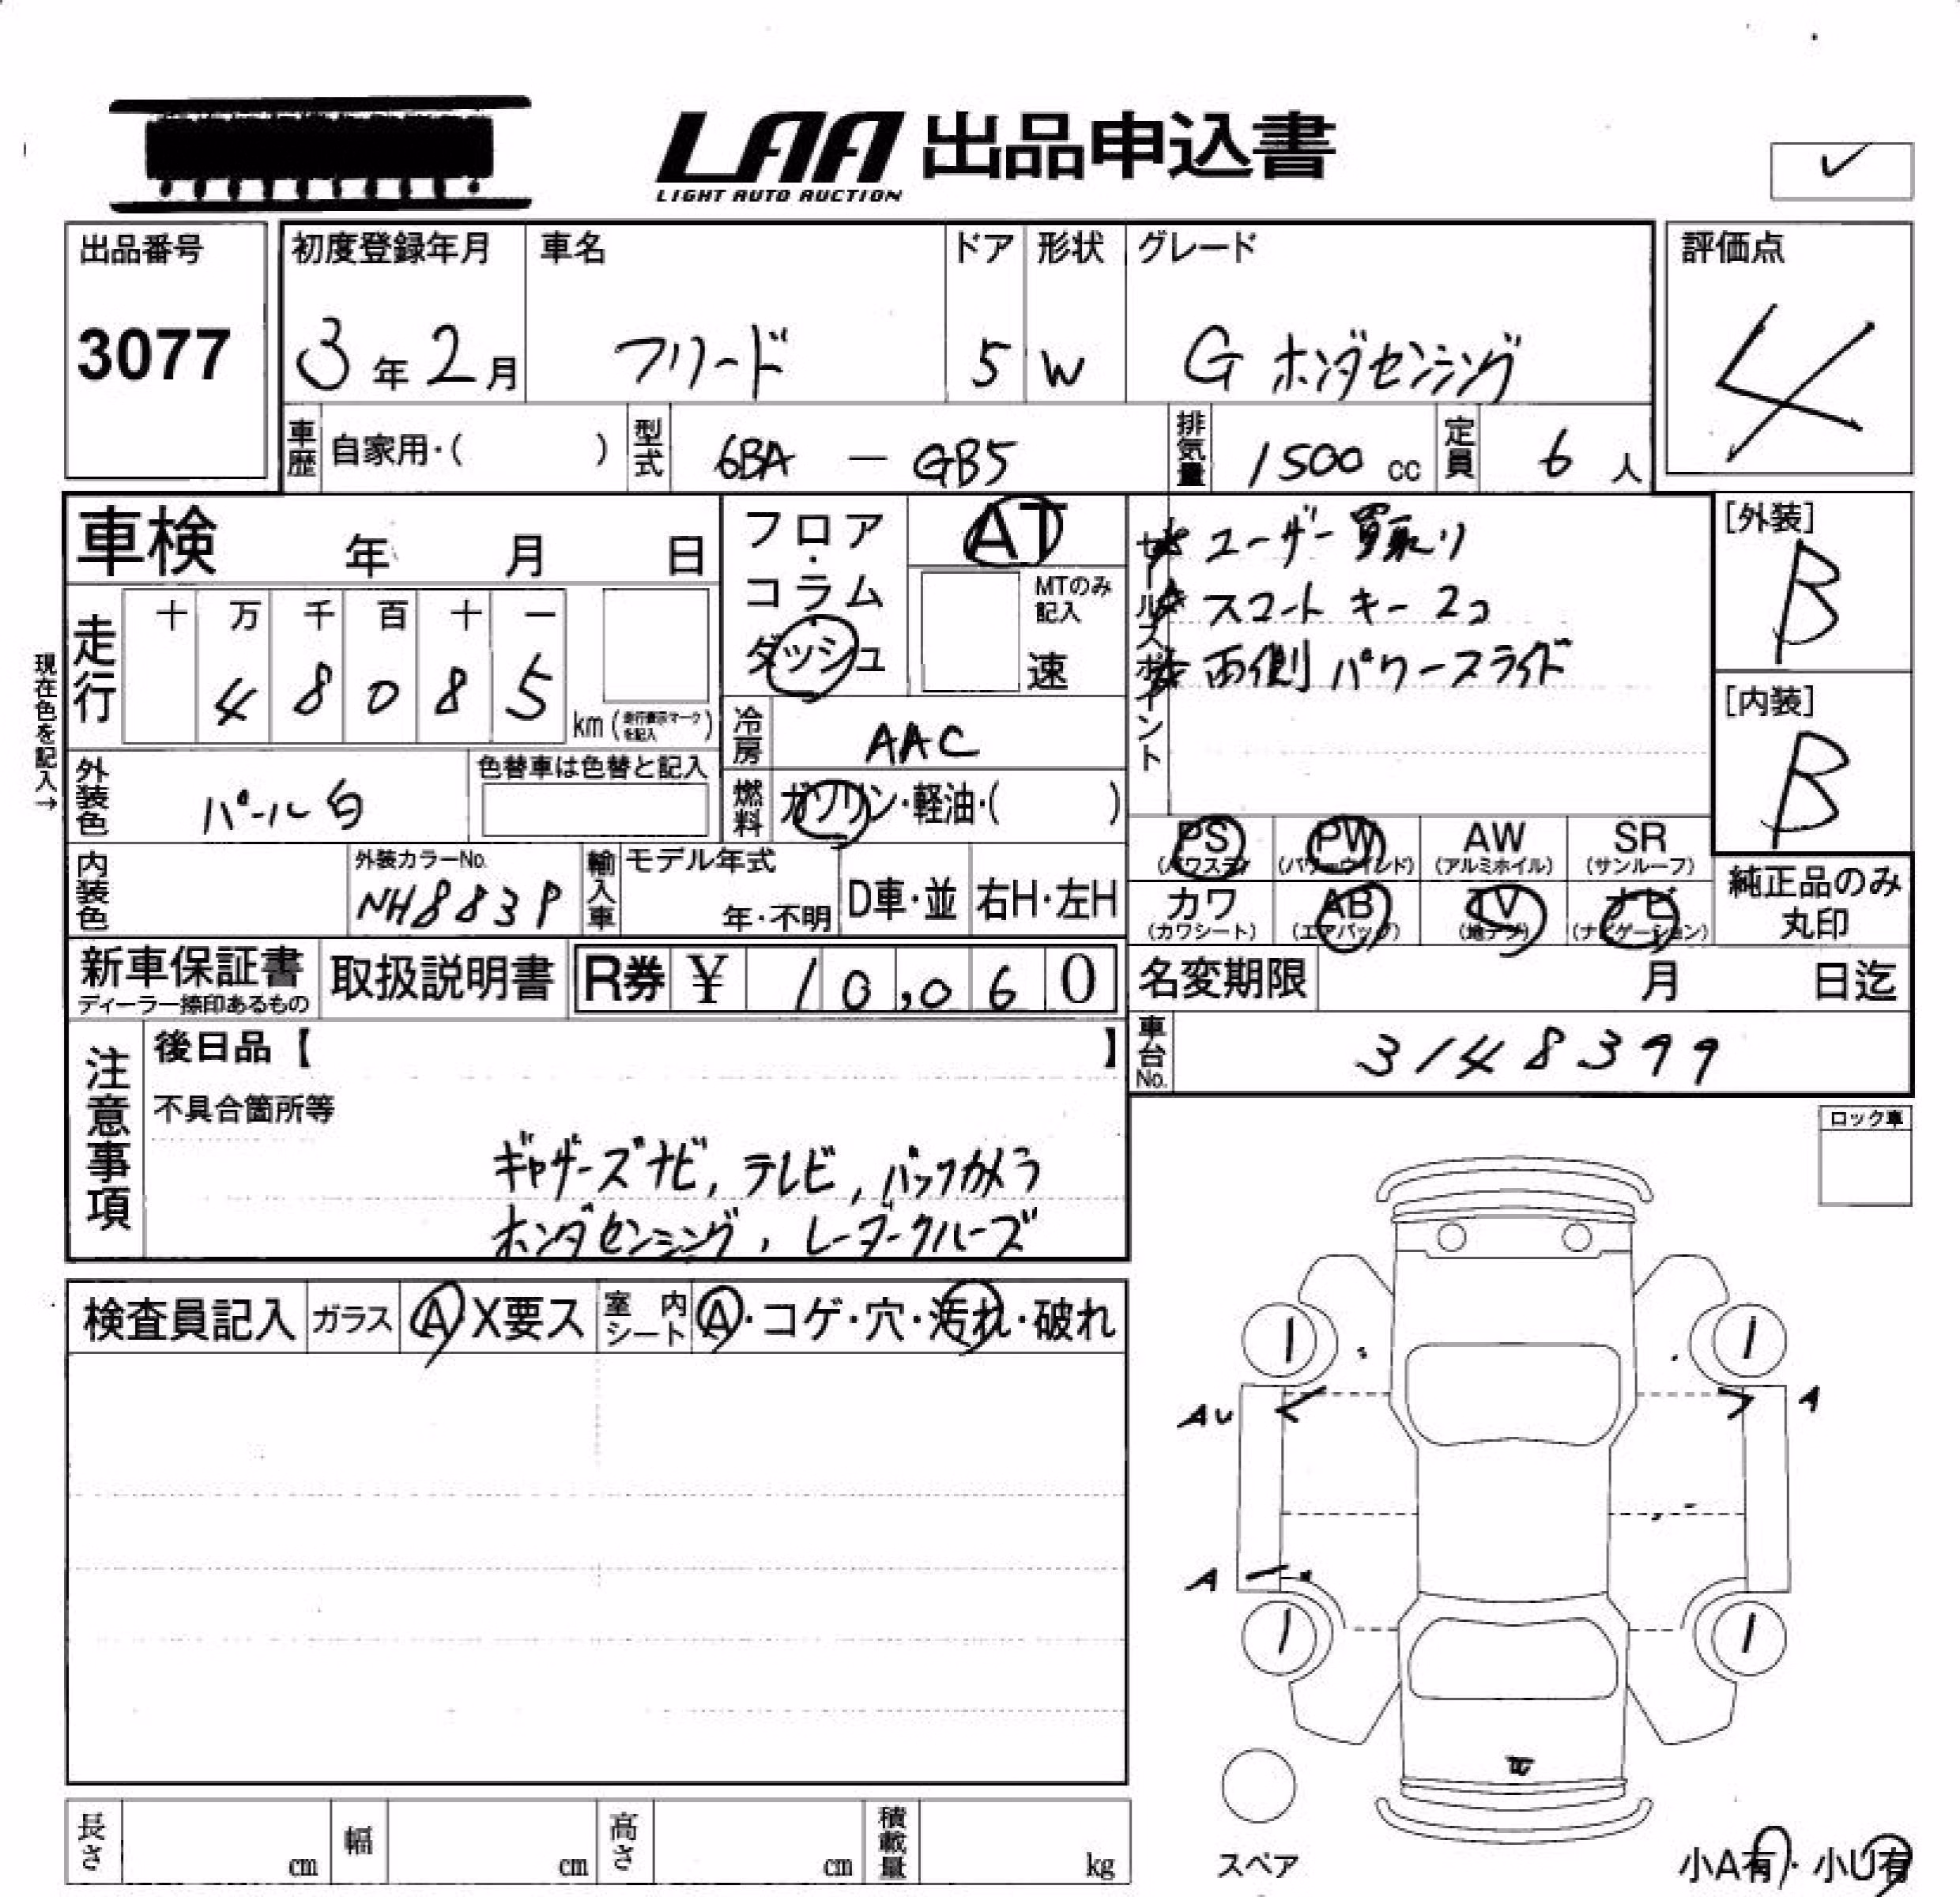 LAA 出品申込書
LIGHT AUTO AUCTION
出品番号
3077
初度登録年月
3年2月
車名
フリード
ドア
5
形状
W
グレード
G ホンダセンシング
評価点
4
車歴 自家用・( )
型式 6BA - GB5
排気量 1500 cc
定員 6 人
車検 年 月 日
フロア・コラム・ダッシュ
AT
MTのみ記入
速
セールスポイント
ユーザー買取り
スマートキー 2コ
両側パワースライド
[外装]
B
[内装]
B
現在色を記入→
走行 十 万 千 百 十 一
48085 km (走行表示マークを記入)
冷房 AAC
外装色 パール白
色替車は色替と記入
燃料 ガソリン・軽油・( )
PS (パワステ)
PW (パワーウインド)
AW (アルミホイル)
SR (サンルーフ)
カワ (カワシート)
AB (エアバッグ)
TV (地デジ)
ナビ (ナビゲーション)
純正品のみ
丸印
内装色
外装カラーNo.
NH883P
輸入車 モデル年式
年・不明
D車・並
右H・左H
新車保証書
ディーラー捺印あるもの
取扱説明書
R券 ¥ 10,060
名変期限 月 日迄
車台No. 3148399
注意事項
後日品【 】
不具合箇所等
ギャザーズナビ, テレビ, バックカメラ
ホンダセンシング, レーダークルーズ
ロック車
検査員記入 ガラス A X要ス
室内シート A・コゲ・穴・汚れ・破れ
1
1
AU
A
A
1
1
スペア
小A有・小U有
長さ cm
幅 cm
高さ cm
積載量 kg